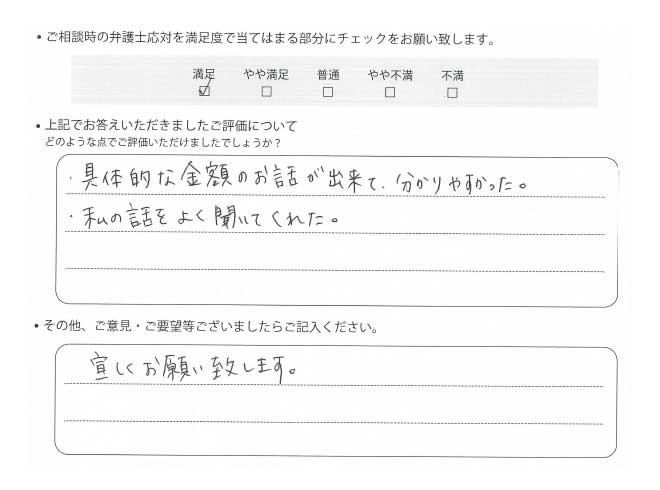 • ご相談時の弁護士応対を満足度で当てはまる部分にチェックをお願い致します。
満足 やや満足 普通 やや不満 不満
☑ □ □ □ □
• 上記でお答えいただきましたご評価について
どのような点でご評価いただけましたでしょうか？
・具体的な金額のお話が出来て、分かりやすかった。
・私の話をよく聞いてくれた。
• その他、ご意見・ご要望等ございましたらご記入ください。
宜しくお願い致します。